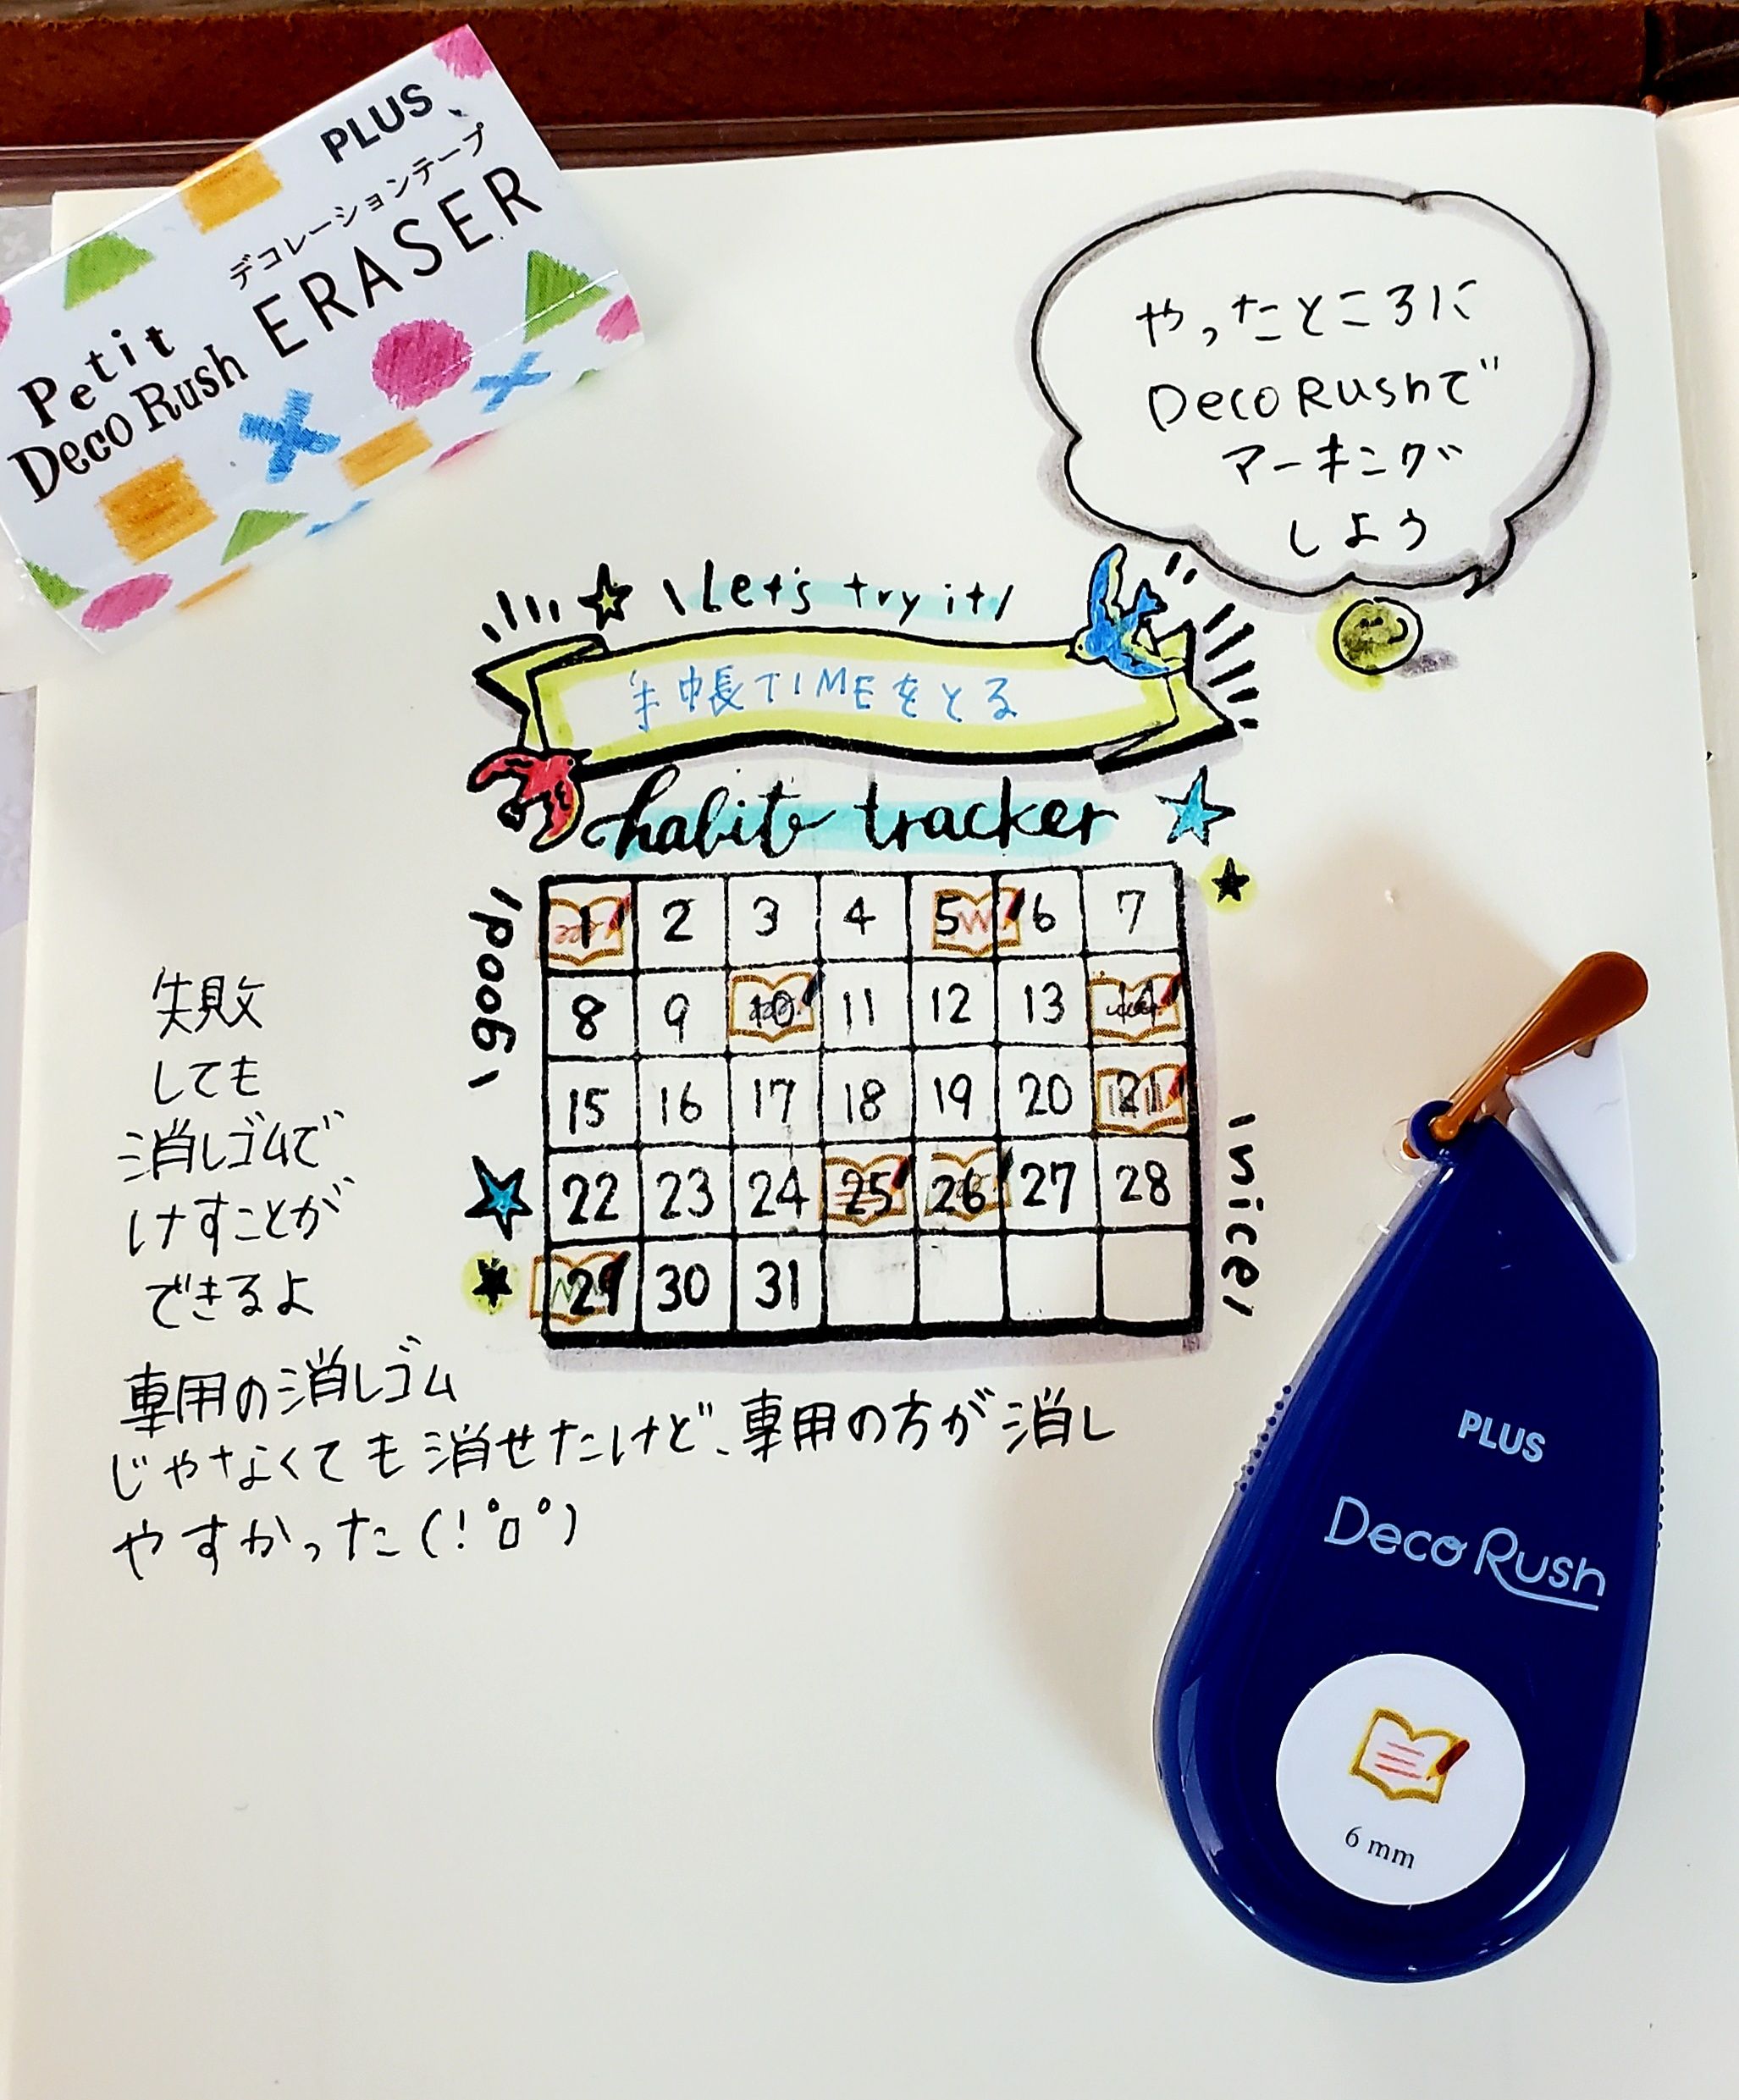 PLUS
デコレーションテープ
Petit
Deco Rush ERASER
やったところに
Deco Rushで
マーキング
しよう
\Let's try it/
手帳TIMEをとる
habit tracker
/good\
1 2 3 4 5 6 7
8 9 10 11 12 13 14
15 16 17 18 19 20 21
22 23 24 25 26 27 28
29 30 31
\nice/
失敗
しても
消しゴムで
けすことが
できるよ
専用の消しゴム
じゃなくても消せたけど、専用の方が消し
やすかった(!゚ロ゚)
PLUS
Deco Rush
6 mm